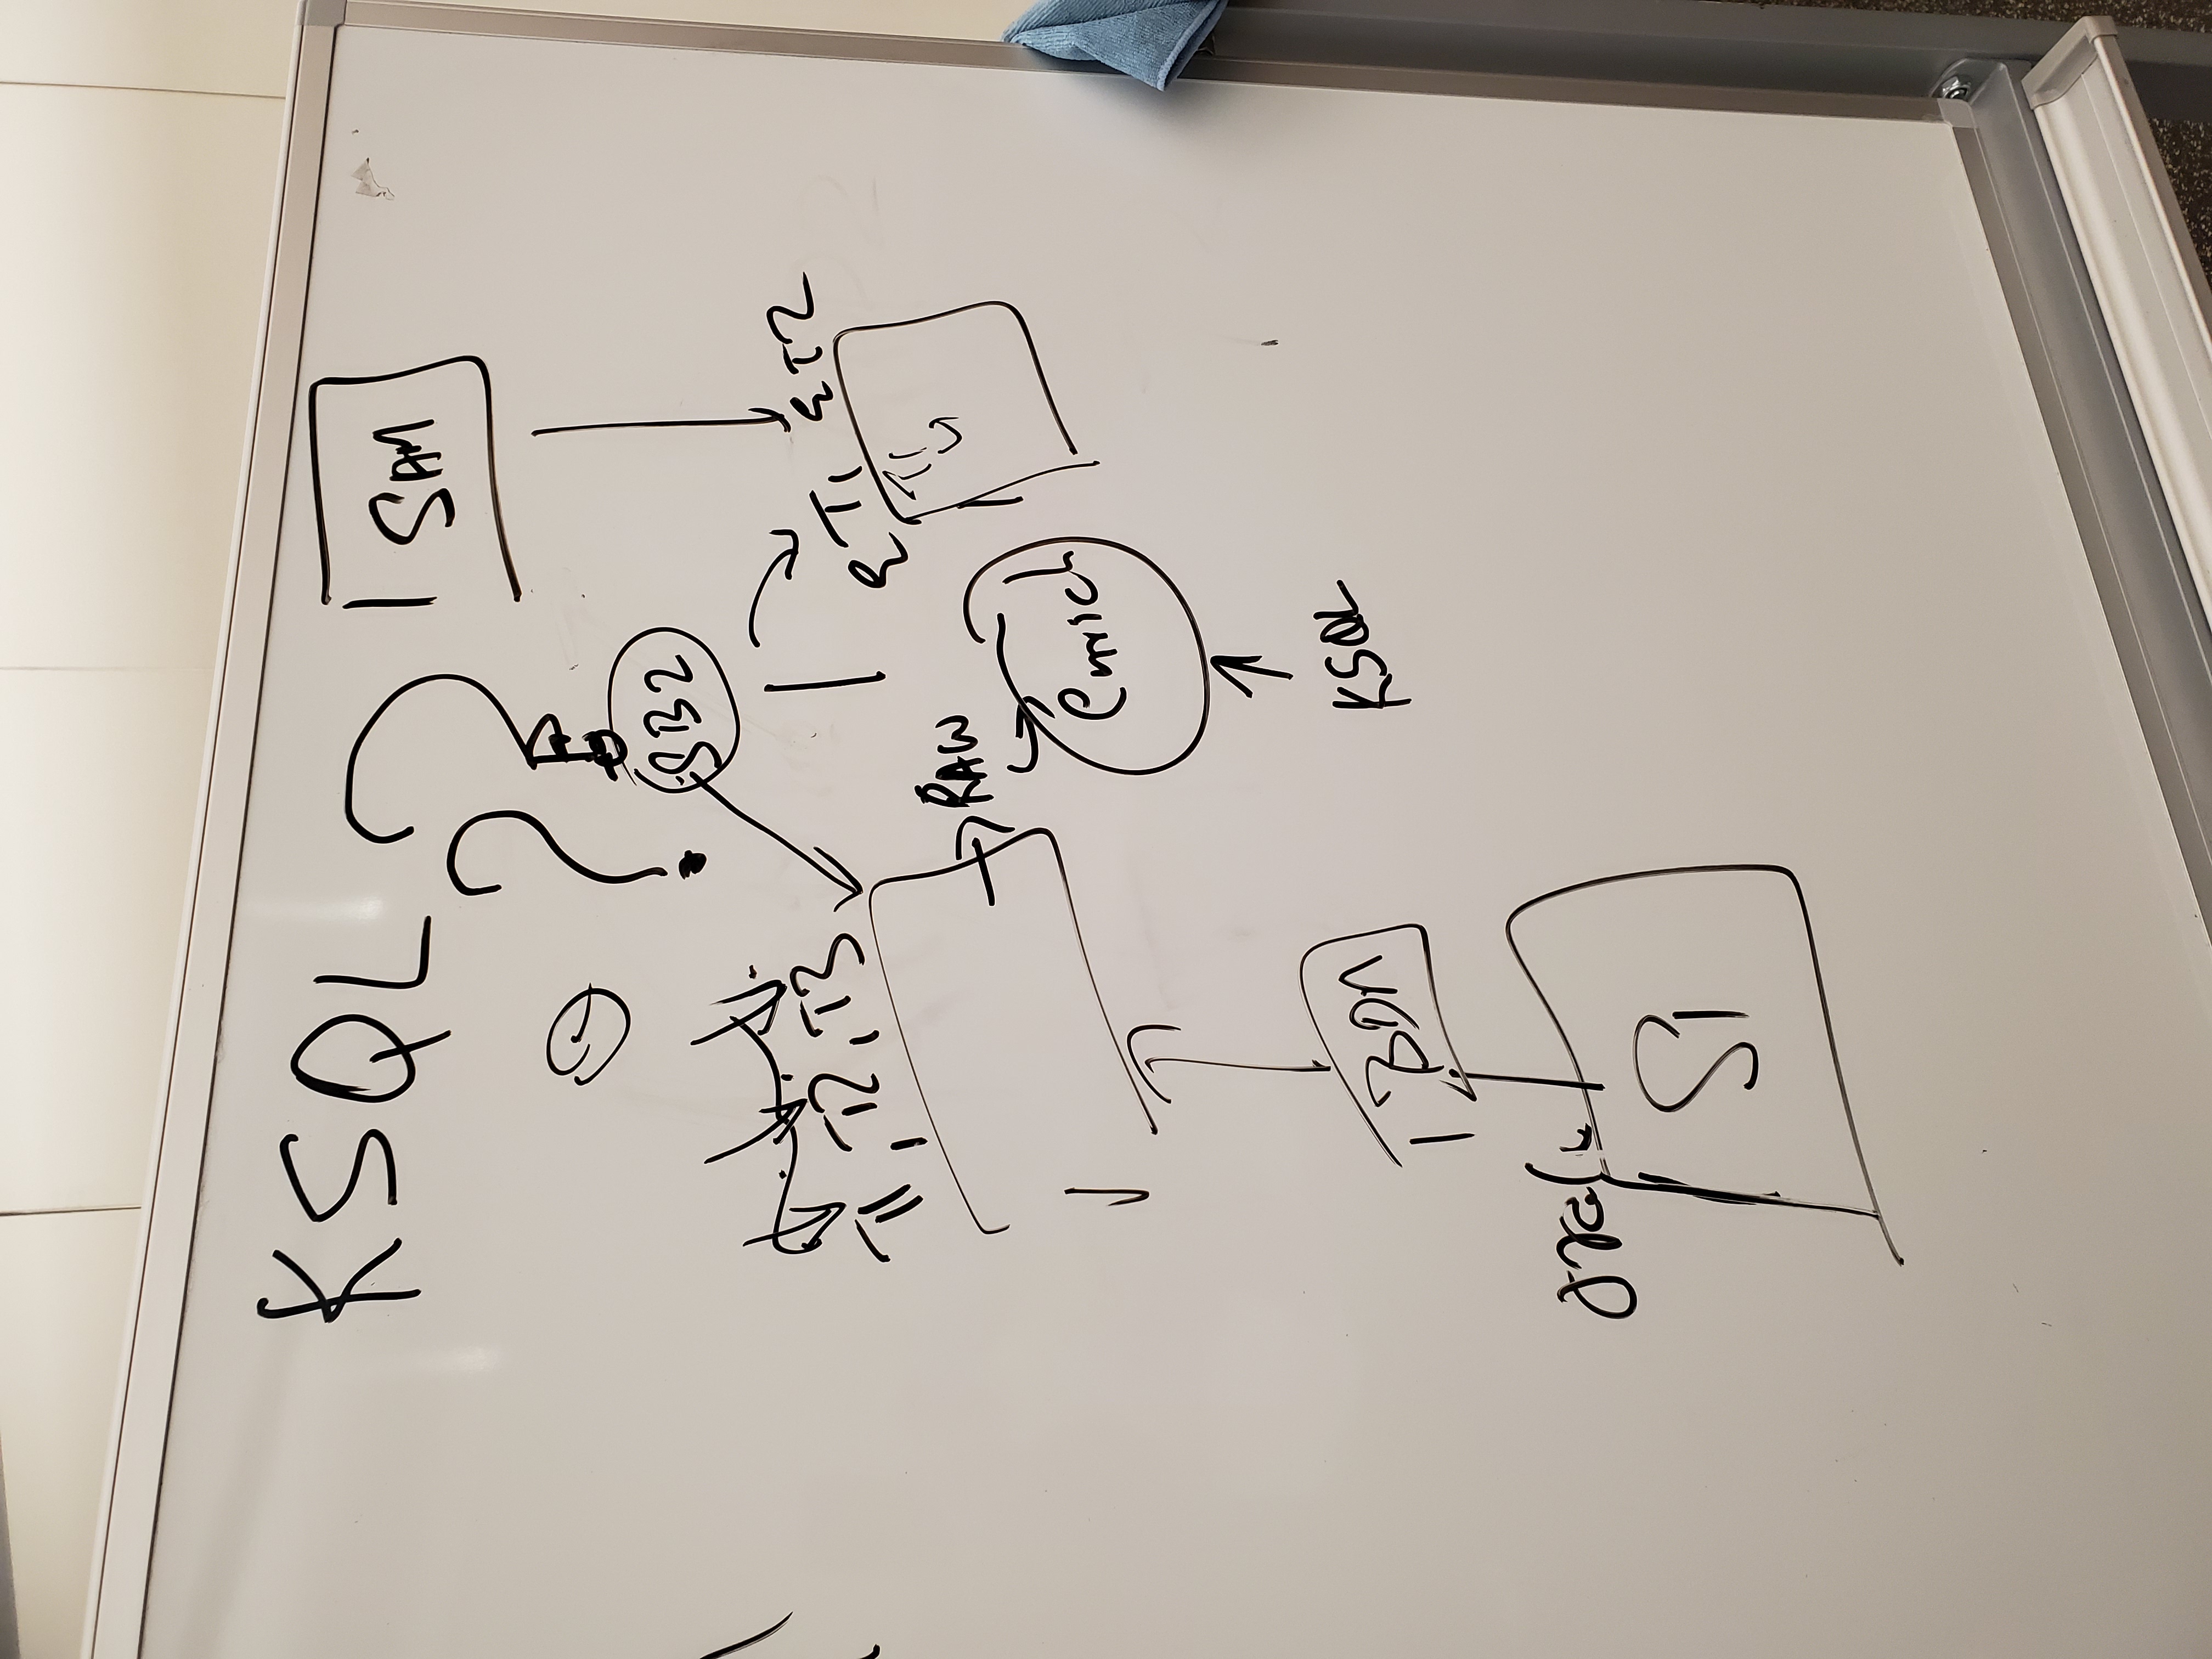 KSQL ? ?
SAM
SB2
T1, T2, T3
ET1 ET2
T1
RAW
Enrich
KSQL
BDA
oracle
S1